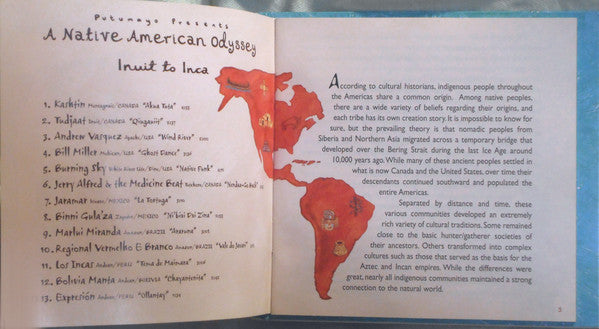 Putumayo Presents
A Native American Odyssey
Inuit to Inca
1. Kashtin Montagnais/CANADA "Akua Tuta"
2. Tudjaat Inuit/CANADA "Qingauiit"
3. Andrew Vasquez Apache/USA "Wind River"
4. Bill Miller Mohican/USA "Ghost Dance"
5. Burning Sky /USA "Native Funk"
6. Jerry Alfred & the Medicine Beat /CANADA
7. Jaramar MEXICO "La Tortuga"
8. Binni Gula'za Zapotec/MEXICO
9. Marlui Miranda BRAZIL "Araruna"
10. Regional Vermelho E Branco BRAZIL
11. Los Incas Andean/PERU "Tema de Maimara"
12. Bolivia Manta Andean/BOLIVIA
13. Expresión Andean/PERU "Ollantay"
According to cultural historians, indigenous people throughout
the Americas share a common origin. Among native peoples,
there are a wide variety of beliefs regarding their origins, and
each tribe has its own creation story. It is impossible to know for
sure, but the prevailing theory is that nomadic peoples from
Siberia and Northern Asia migrated across a temporary bridge that
developed over the Bering Strait during the last Ice Age around
10,000 years ago. While many of these ancient peoples settled in
what is now Canada and the United States, over time their
descendants continued southward and populated the
entire Americas.
Separated by distance and time, these
various communities developed an extremely
rich variety of cultural traditions. Some remained
close to the basic hunter/gatherer societies of
their ancestors. Others transformed into complex
cultures such as those that served as the basis for the
Aztec and Incan empires. While the differences were
great, nearly all indigenous communities maintained a strong
connection to the natural world.
5